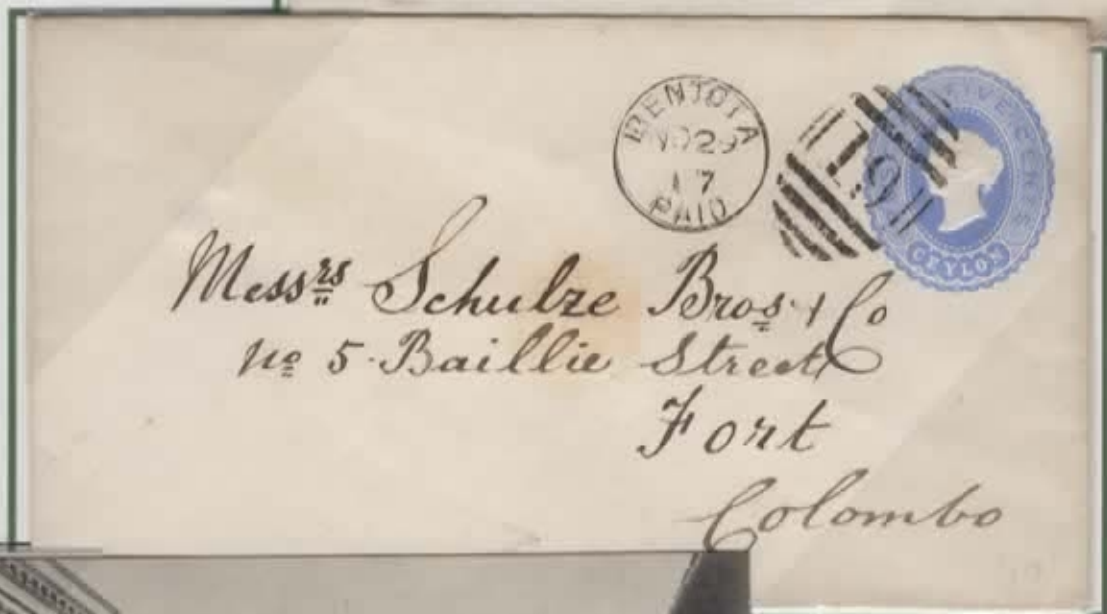 BENTOTA
NO 29
PAID
19
FIVE CENTS
CEYLON
Messrs Schulze Bros & Co
No 5 Baillie Street
Fort
Colombo